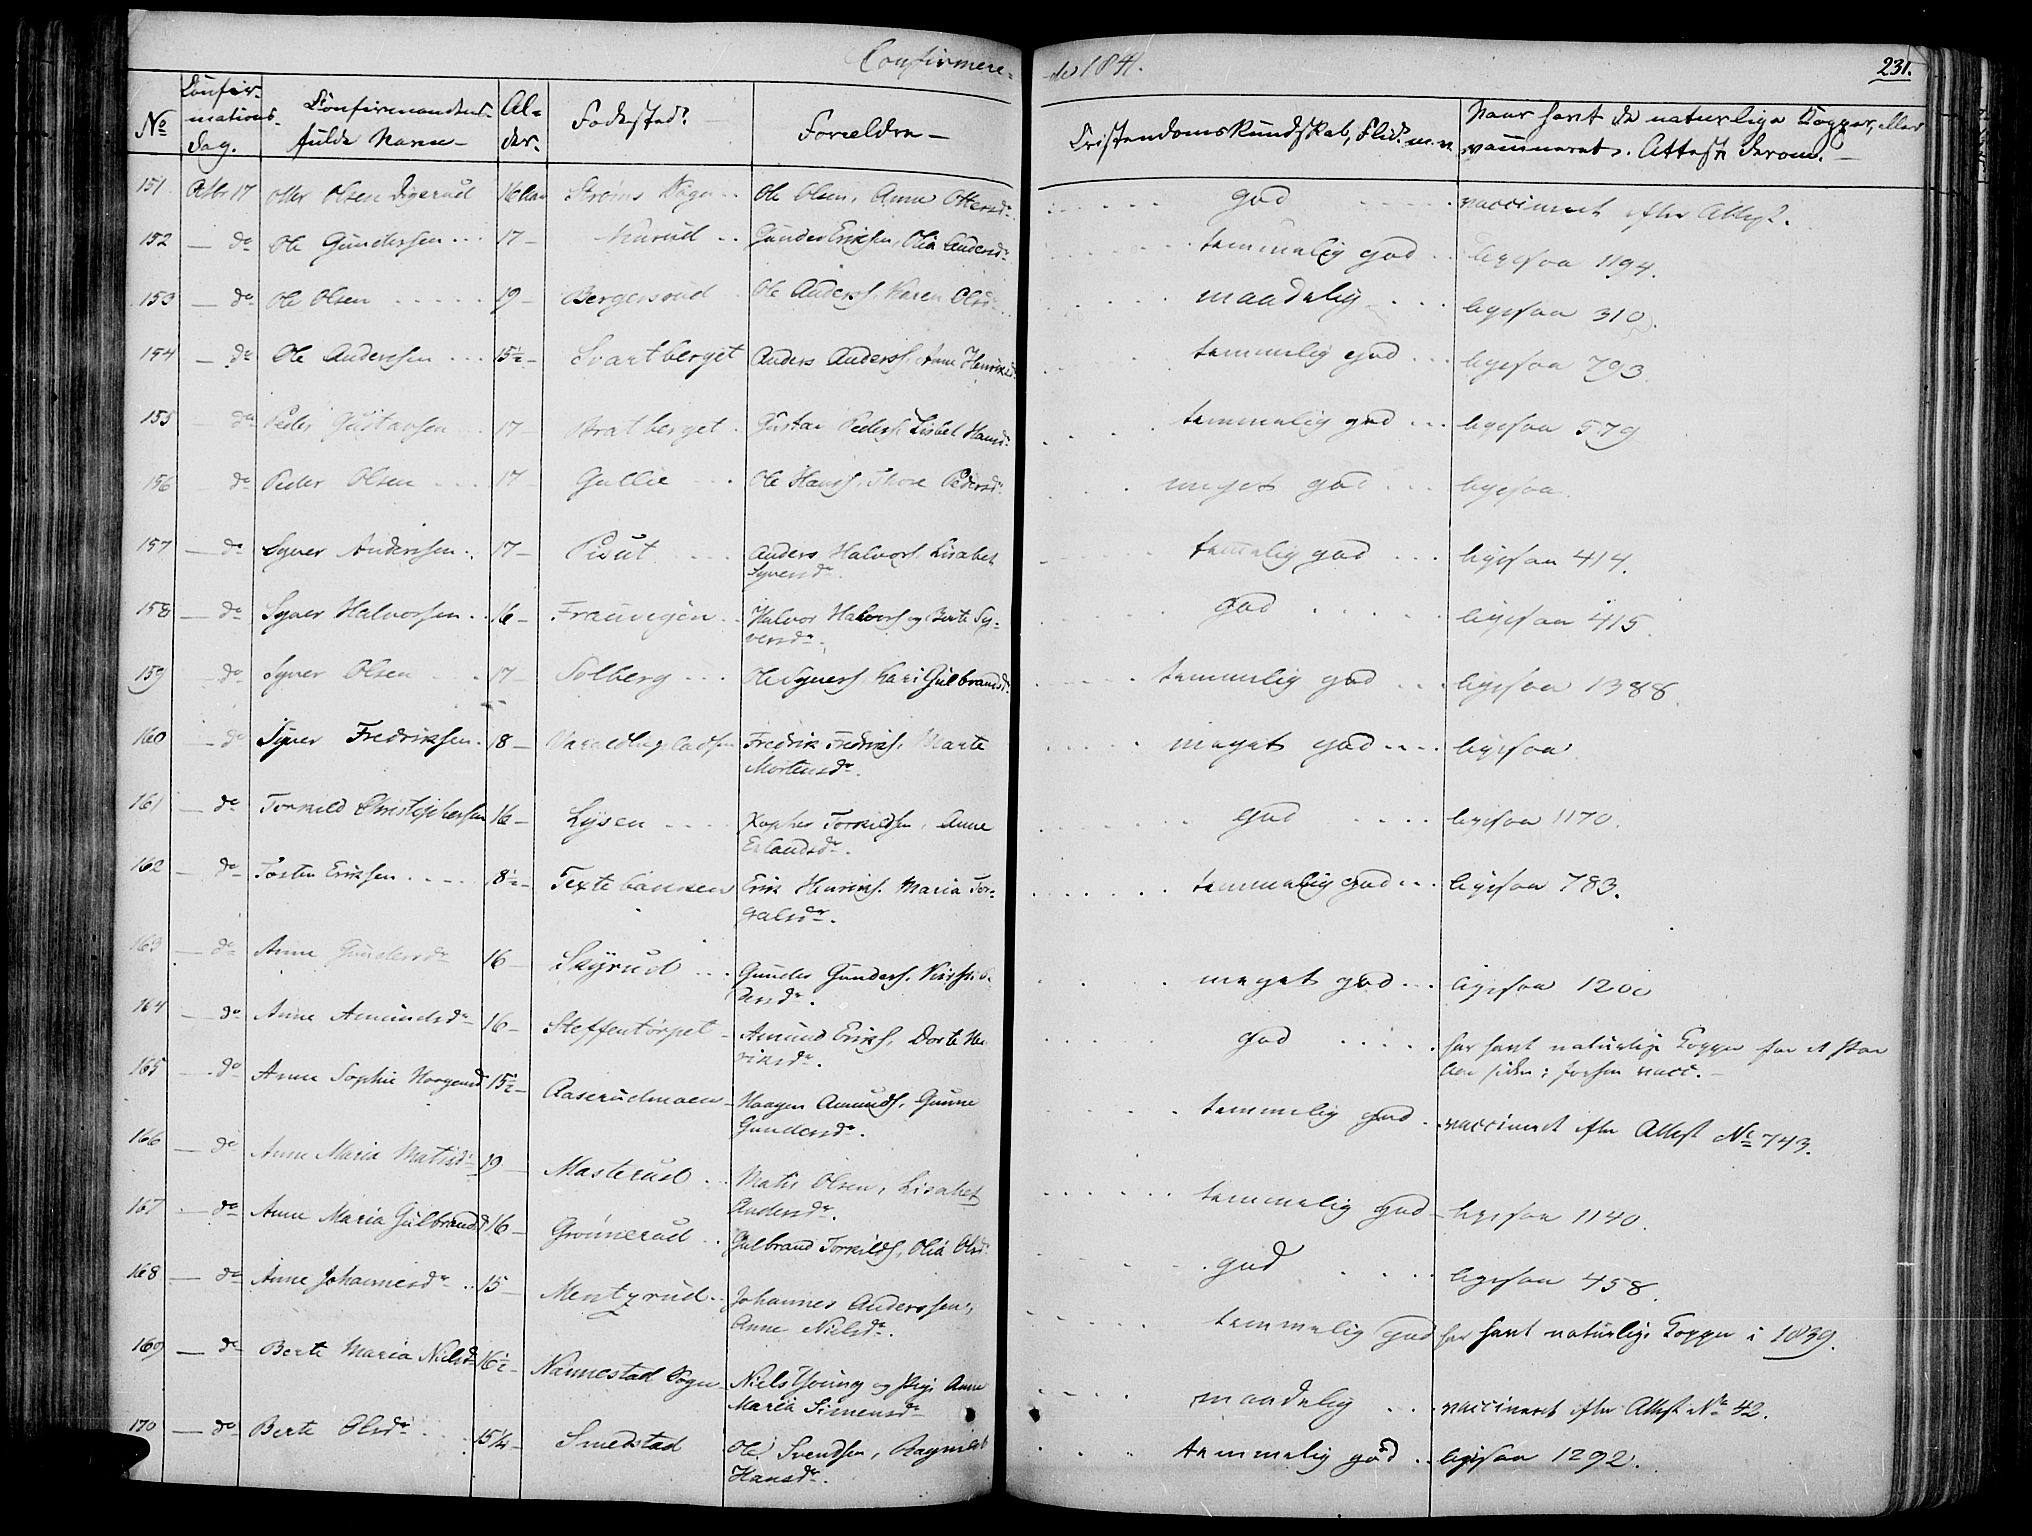 Confirmere= de 1841. 231.
No Confir- mations- dag. Confirmandens fulde Navn Al= der. Fødested. Forældre Cristendomskundskab, Flid m. v. Naar havt de naturlige Kopper, eller vaccineret. Attest derom.
151. Octbr 17 Otter Olsen Digerud 16 Aar Strøms Sogn Ole Olsen, Anne Ottersdr. god vaccineret efter Attest.
152 do Ole Gundersen 17 Gunder Eriksen, Olia Andersdr. temmelig god ligesaa 1194.
153 do Ole Olsen 19 Bergersrud Ole Anderss, Karen Olsdr maadelig ligesaa 310.
154 do Ole Anderssen 15½ Svartberget Anders Anderss, Anne Henriksdr temmelig god ligesaa 793.
155 do Peder Gustavsen 17 Bratberget Gustav Peders, Lisbet Hansdr temmelig god ligesaa 579
156 do Peder Olsen 17 Gullie Ole Hanss, Thore Pedersdr. meget god ligesaa
157 do Syver Anderssen 17 Anders Halvors, Lisabet
Syversdr. temmelig god ligesaa 414.
158 do Syver Halvorsen 16 Halvor Halvors og Berte Sy=
versdr. god ligesaa 415.
159 do Syver Olsen 17 Solberg Ole Syvers, Kari Gulbrandsdr temmelig god ligesaa 1388.
160 do Syver Fredriksen 18 Fredrik Fredriks, Marte
Mortensdr. meget god ligesaa
161 do Torkild Christophersen 16 Lysen Xopher Torkildsen, Anne
Erlandsdr. god ligesaa 1170.
162 do Tosten Eriksen 18½ Erik Henriks, Maria Tor=
galsdr. temmelig god ligesaa 783.
163 do Anne Gundersdr 16 Skyrud Gunder Gunders,
meget god ligesaa 1200
164 do Anne Amundsdr 16 Steffentorpet Amund Eriks, Dorte Hen
riksdr. god har havt naturlige Kopper for et Par
Aar siden; forhen vacc.
165 do Anne Sophie Haagensd 15½ Aaserudmoen Haagen Amunds, Gunne
Gundersdr. temmelig god vaccineret efter Attest No 743.
166 do Anne Maria Matisdr 19 Masterud Matis Olsen, Lisabet
Andersdr. temmelig god ligesaa 1140.
167 do Anne Maria Gulbrandsd 16 Grønnerud Gulbrand Torkilds, Olia Olsdr god ligesaa 458.
168 do Anne Johannesdr 15 Mentzrud Johannes Anderssen,
Anne Nielsdr. temmelig god har havt naturlige Kopper i 1839.
169 do Berte Maria Nielsdr 16½ Nannestad Sogn Niels Thoring og Pige Anne
Maria Simensdr maadelig vaccineret efter Attest No 42.
170 do Berte Olsdr 15¼ Smedstad Ole Svendsen, Ragnild
Hansdr. temmelig god ligesaa 1292.